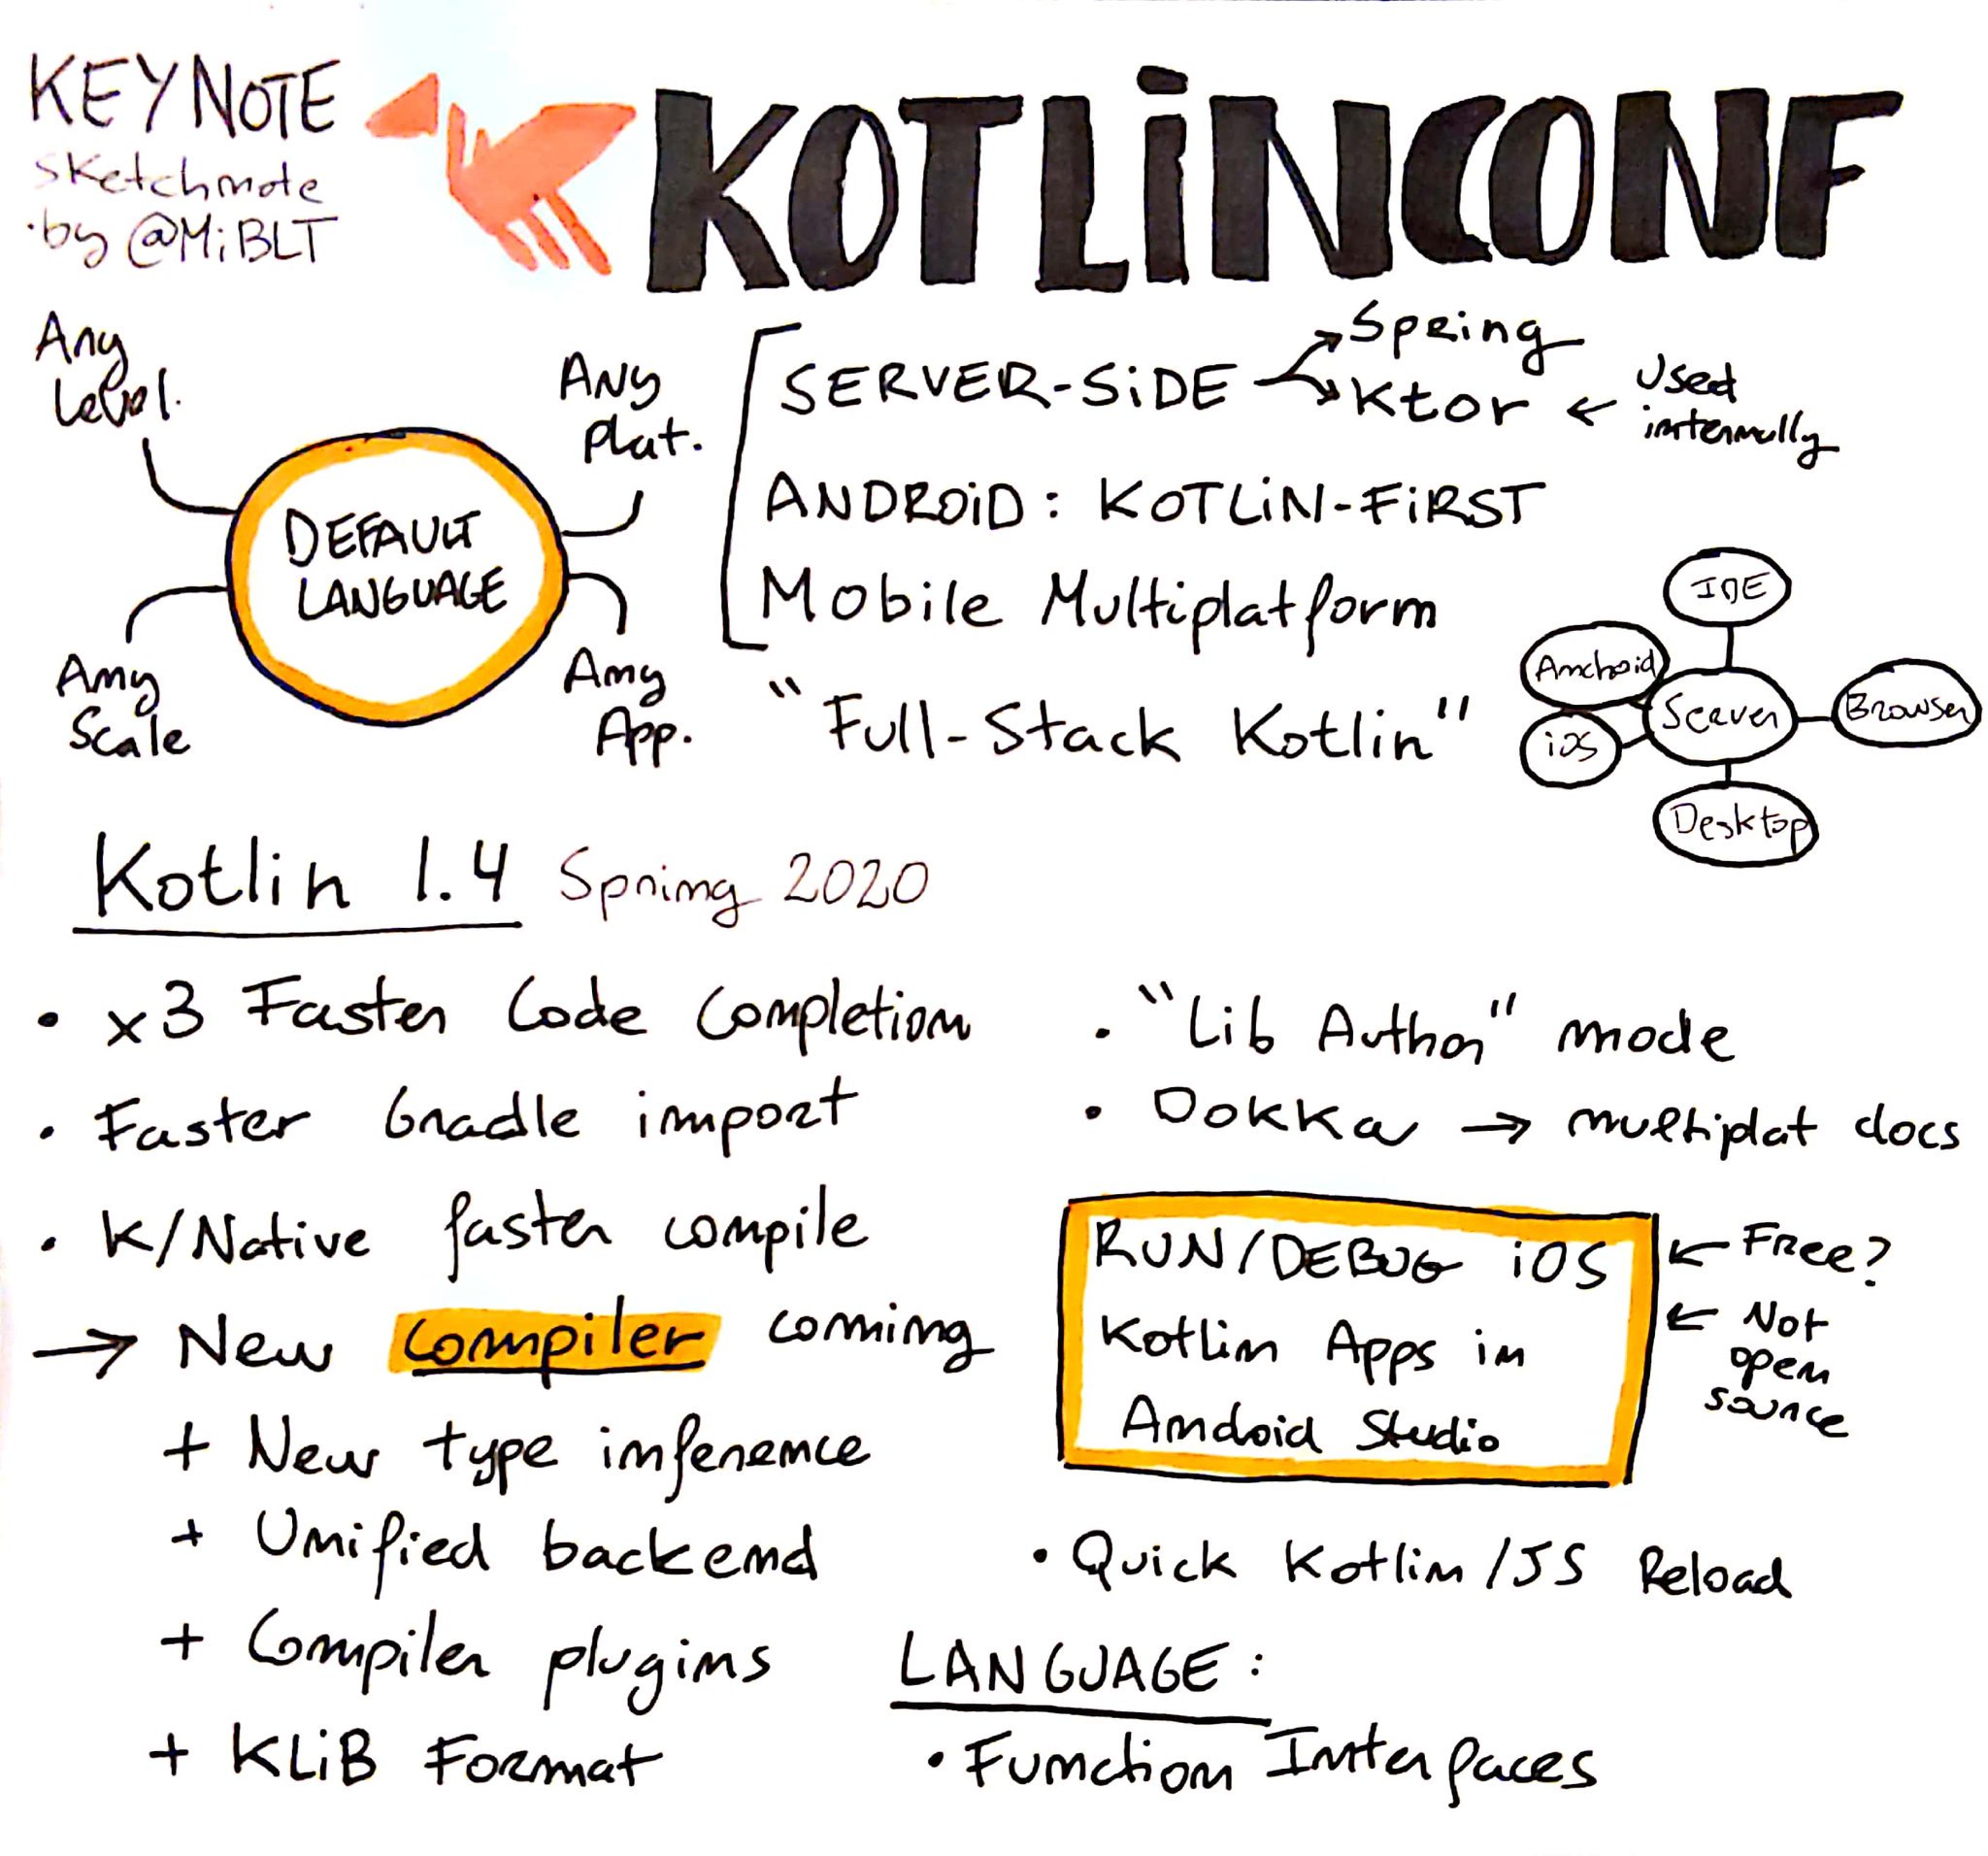 KEYNOTE
sketchnote
by @MiBLT
KOTLiNCONF
Any
Level.
Any
Plat.
DEFAULT
LANGUAGE
Any
Scale
Any
App.
SERVER-SiDE
Spring
Ktor ← used
internally
ANDROiD: KOTLiN-FiRST
Mobile Multiplatform
"Full-Stack Kotlin"
IDE
Android
Server
Browser
iOS
Desktop
Kotlin 1.4 Spring 2020
• x3 Faster Code Completion
• Faster Gradle import
• K/Native faster compile
→ New compiler coming
+ New type inference
+ Unified backend
+ Compiler plugins
+ KLiB Format
• "Lib Author" mode
• Dokka → multiplat docs
RUN/DEBUG iOS
Kotlin Apps in
Andoid Studio
← Free?
← Not
open
source
• Quick Kotlin/JS Reload
LANGUAGE:
• Function Interfaces